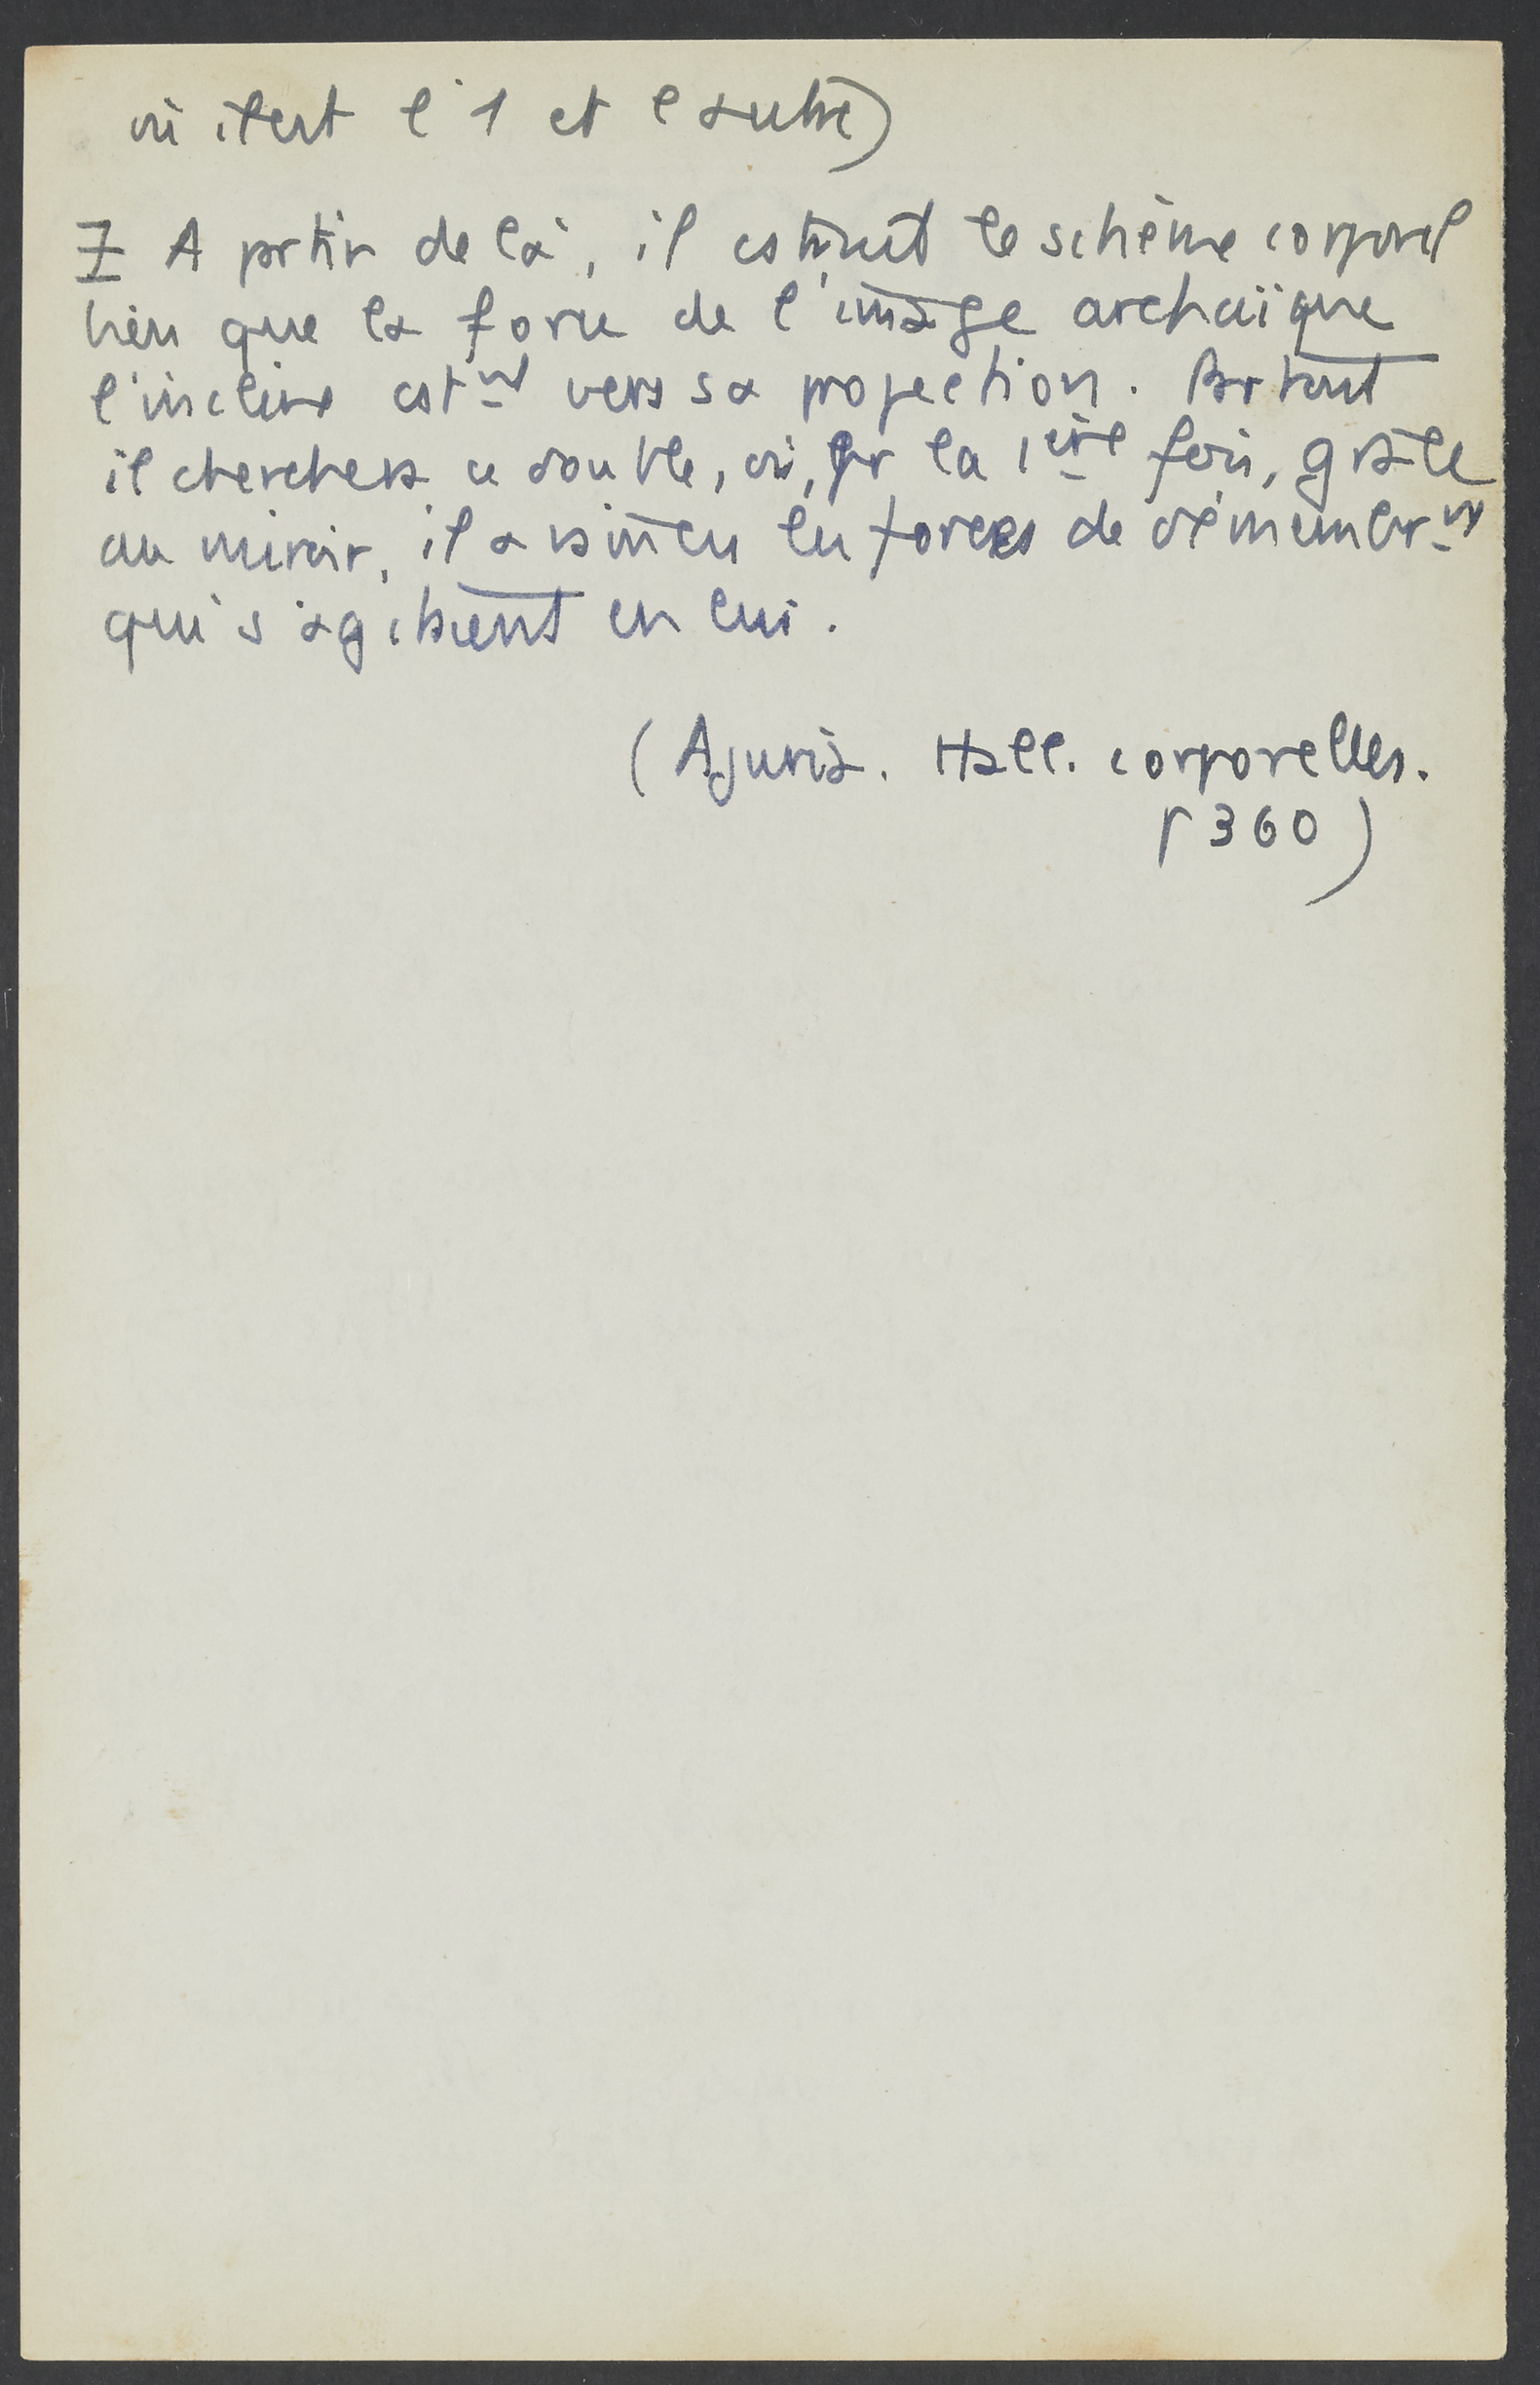 où il est l'1 et l'autre)
7 A prtir de là, il cstruit le schème corporel
bien que la force de l'image archaïque
l'incline cstmt vers sa projection. Partout
il cherchera ce double, où, pr la 1ère fois, grâce
au miroir, il a vaincu les forces de démembrmt
qui s'agitaient en lui.
(Ajuria. Hall. corporelles.
p 360)